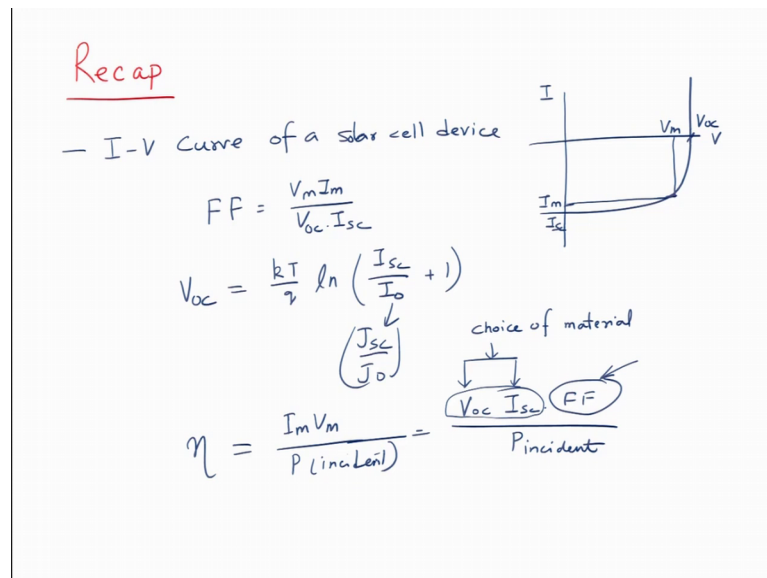 Recap
- I-V Curve of a solar cell device
I
Vm Voc
V
Im
Is
FF = VmIm / Voc. Isc
Voc = kT/q ln (Isc/Io + 1)
(Jsc/Jo)
choice of material
η = ImVm / P(incident) = Voc Isc. FF / Pincident